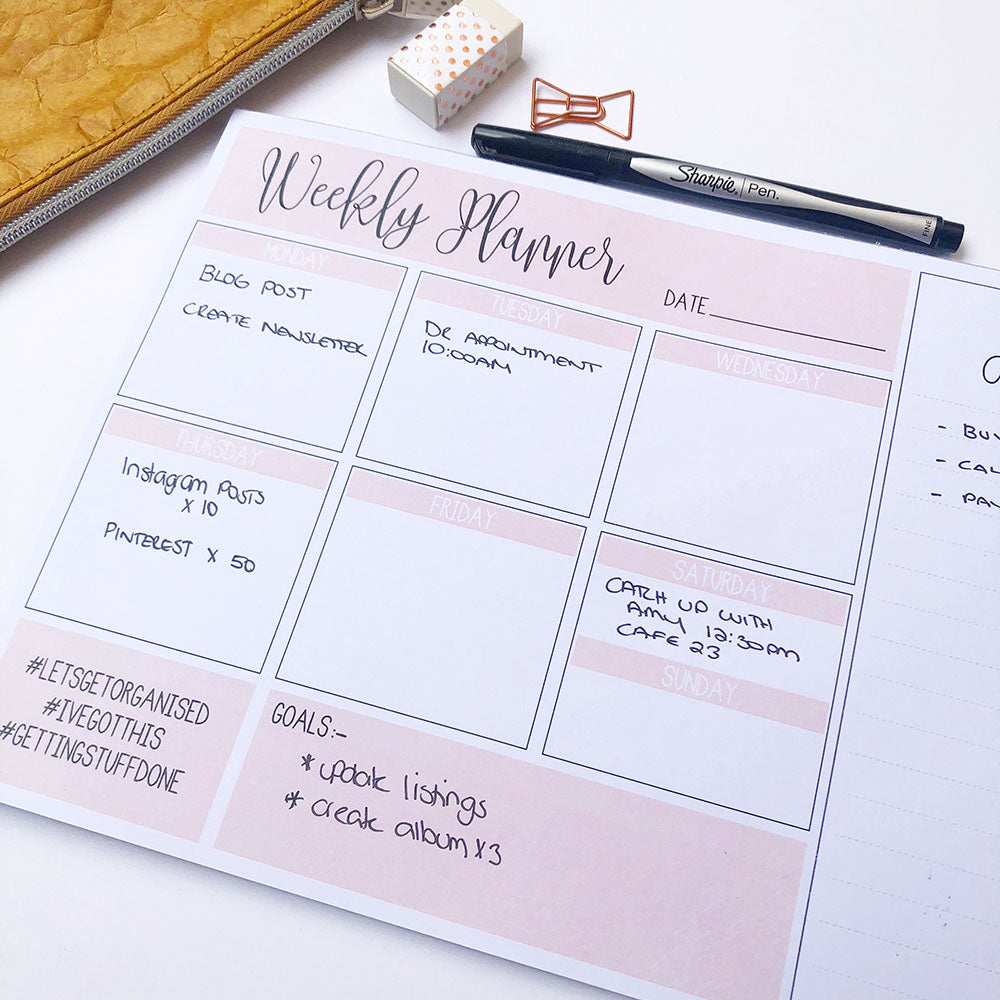 Weekly Planner
DATE
Sharpie Pen.
FINE
MONDAY
BLOG POST
CREATE NEWSLETTER
TUESDAY
DR APPOINTMENT
10:00AM
WEDNESDAY
THURSDAY
Instagram POSTS
x 10
PINTEREST x 50
FRIDAY
SATURDAY
CATCH UP WITH
AMY 12:30pm
CAFE 23
SUNDAY
#LETSGETORGANISED
#IVEGOTTHIS
#GETTINGSTUFFDONE
GOALS:-
* update listings
* create album x3